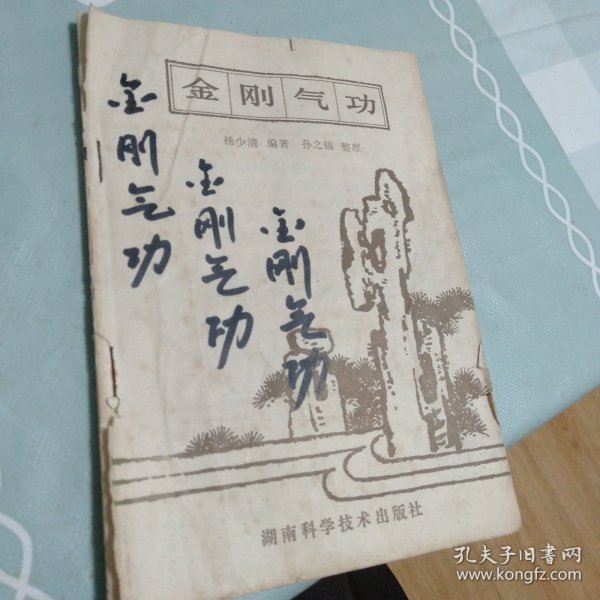 金刚气功
杨少清 编著 孙之镐 整理
金刚气功
金刚气功
金刚气功
湖南科学技术出版社
孔夫子旧书网
www.kongfz.com